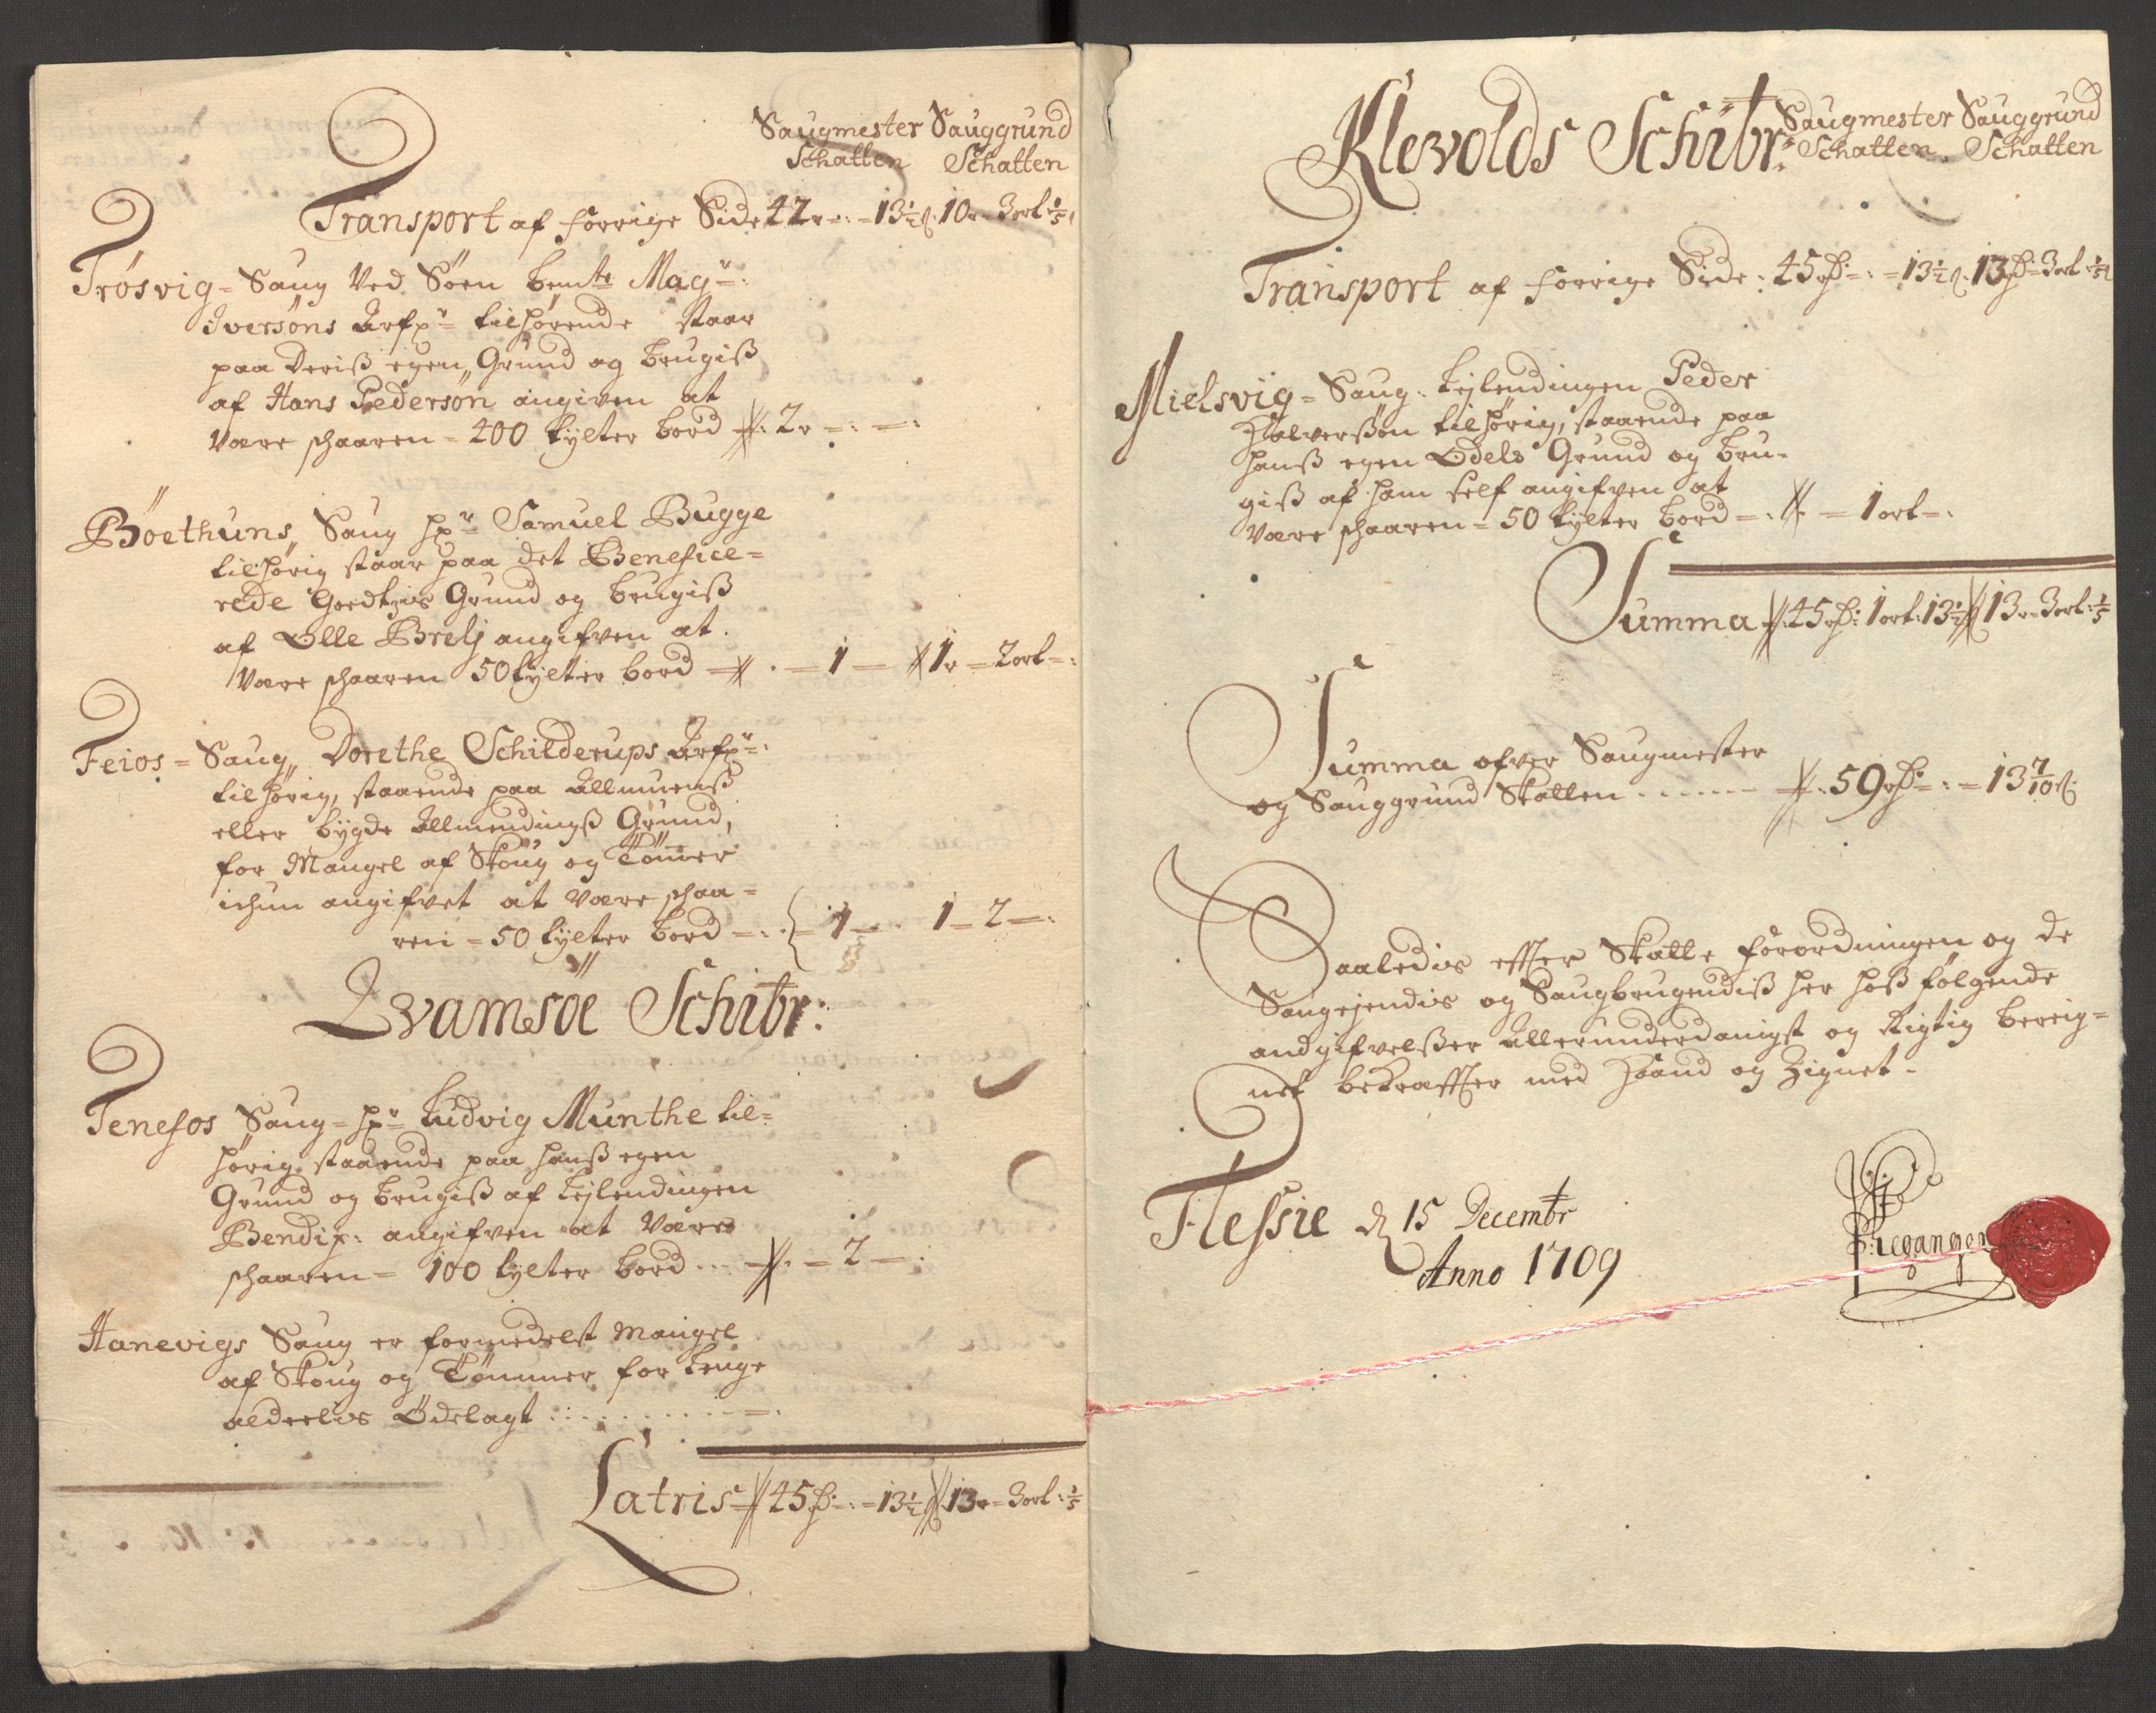 Saugmester Sauggrund
Schatten Schatten
Transport af forrige Side 42r -:- 13½ß. 10r- 3ort ⅕
Trøsvig = Saug Ved Søen bemte Mag:
Iversøns Arfr: tilhørende staar
paa Deriß egen Grund og brugiß
af Hans Pedersøn angiven at
Være schaaren = 400 tylter bord 2r -:-:
Böethuns Saug Hr: Samuel Bugge
tilhørig staar paa det Benefice=
rede Goedtzis Grund og brugiß
af Olle Brelj angifven at
Være schaaren 50 tylter bord - 1 - 1r - 2ort -:
Feios = Saug Dorethe Schilderups Arfr:
tilhørig, staaende paa Allmuenß
eller bygde Allmendingß Grund,
for Mangel af Skoug og Tömer
ichun angifvet at være schaa=
ren = 50 tylter bord -:- 1 - 1 - 2 -:
Qvamsöe Schibr:
Tenefos Saug = Hr: Ludvig Munthe til=
hørig, staaende paa hanß egen
Grund og brugiß af Lejlendingen
Bendix: angifven at Være
schaaren = 100 tylter bord - 2 -:
Hanevigs Saug er formedelst Mangel
af Skoug og Tömmer for lenge
aldeelis Ödelagt
Latris 45rd -:- 13½ 13r- 3ort: ⅕
Klevolds Schibr:
Saugmester Sauggrund
Schatten Schatten
Transport af forrige Side: 45rd -:- 13½ß. 13rd- 3ort: ⅕
Mielsvig = Saug: Lejlendingen Peder
Halverßön tilhørig, staaende paa
hanß egen Odels Grund og bru-
giß af ham self angifven at
være schaaren = 50 tylter bord -: - 1ort -:
Summa 45rd: 1ort: 13½ 13r- 3ort: ⅕
Summa ofver Saugmester
og Sauggrund Skatten - 59rd -:- 13 7/10 ß
Saaledis effter Skatte forordningen og de
Saugejendis og Saugbrugendiß her hoß følgende
andgifvelßer Allerunderdanigst og Rigtig bereig=
net bekraffter med Haand og Zignet-
Flessie d 15 Decembr
Anno 1709